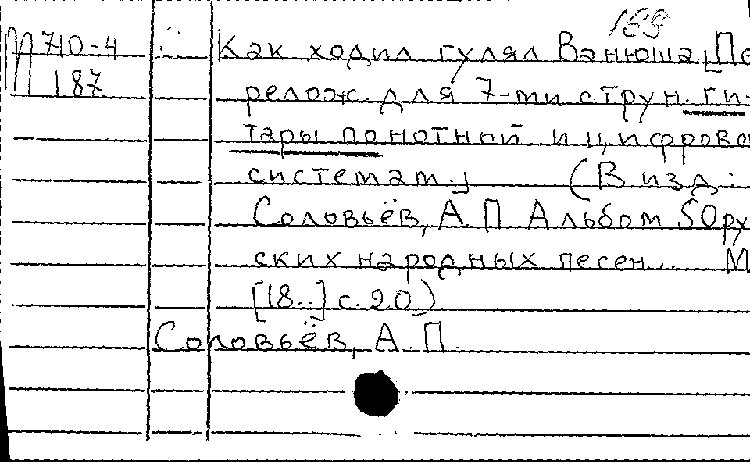 169
П710-4 Как ходил гулял Ванюша [Пе
187 релож. для 7-ми струн. ги-
тары по нотной и цифрово
системам.] (В изд.:
Соловьёв, А.П Альбом 50 ру
ских народных песен... М
[18..] с.20)
Соловьёв, А.П.